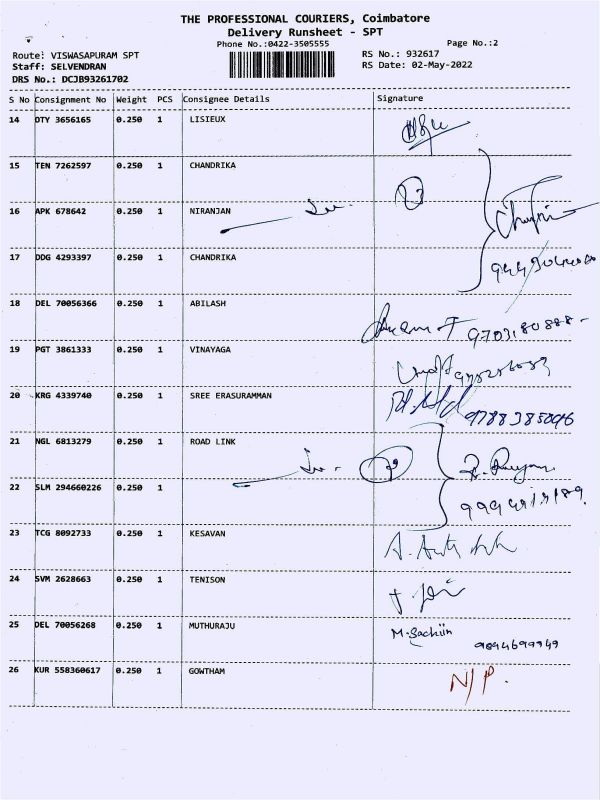 THE PROFESSIONAL COURIERS, Coimbatore
Delivery Runsheet - SPT
Phone No.:0422-3505555
Page No.:2
Route: VISWASAPURAM SPT
RS No.: 932617
Staff: SELVENDRAN
RS Date: 02-May-2022
DRS No.: DCJB93261702
S No Consignment No Weight PCS Consignee Details Signature
14 DTY 3656165 0.250 1 LISIEUX
15 TEN 7262597 0.250 1 CHANDRIKA
16 APK 678642 0.250 1 NIRANJAN
17 DDG 4293397 0.250 1 CHANDRIKA
18 DEL 70056366 0.250 1 ABILASH
19 PGT 3861333 0.250 1 VINAYAGA
20 KRG 4339740 0.250 1 SREE ERASURAMMAN
9788385096
21 NGL 6813279 0.250 1 ROAD LINK
22 SLM 294660226 0.250 1
23 TCG 8092733 0.250 1 KESAVAN
24 SVM 2628663 0.250 1 TENISON
25 DEL 70056268 0.250 1 MUTHURAJU M. Sachin
9894699949
26 KUR 558360617 0.250 1 GOWTHAM N/P.